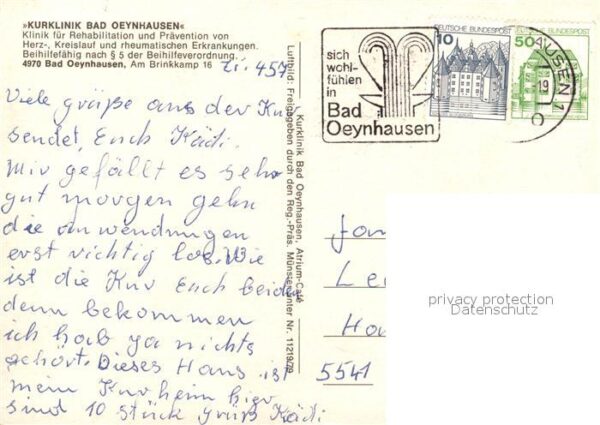 »KURKLINIK BAD OEYNHAUSEN«
Klinik für Rehabilitation und Prävention von
Herz-, Kreislauf und rheumatischen Erkrankungen.
Beihilfefähig nach § 5 der Beihilfeverordnung.
4970 Bad Oeynhausen, Am Brinkkamp 16
Zi. 457
Viele grüße aus der Kur
sendet Euch Kädi.
Mir gefällt es sehr
gut morgen gehn
die anwendnungen
erst richtig los. Wie
ist die Kur Euch beiden
denn bekommen
ich hab ya nichts
gehört. Dieses Haus ist
mein Kurheim hier
sind 10 Stück grüß Kädi
Kurklinik Bad Oeynhausen, Atrium-Café
Luftbild: Freigegeben durch den Reg.-Präs. Münster unter Nr. 11219/79
sich
wohl-
fühlen
in
Bad
Oeynhausen
10
DEUTSCHE BUNDESPOST
50
DEUTSCHE BUNDESPOST
AUSEN 1
19
Fam
Le
Ha
5541
privacy protection
Datenschutz